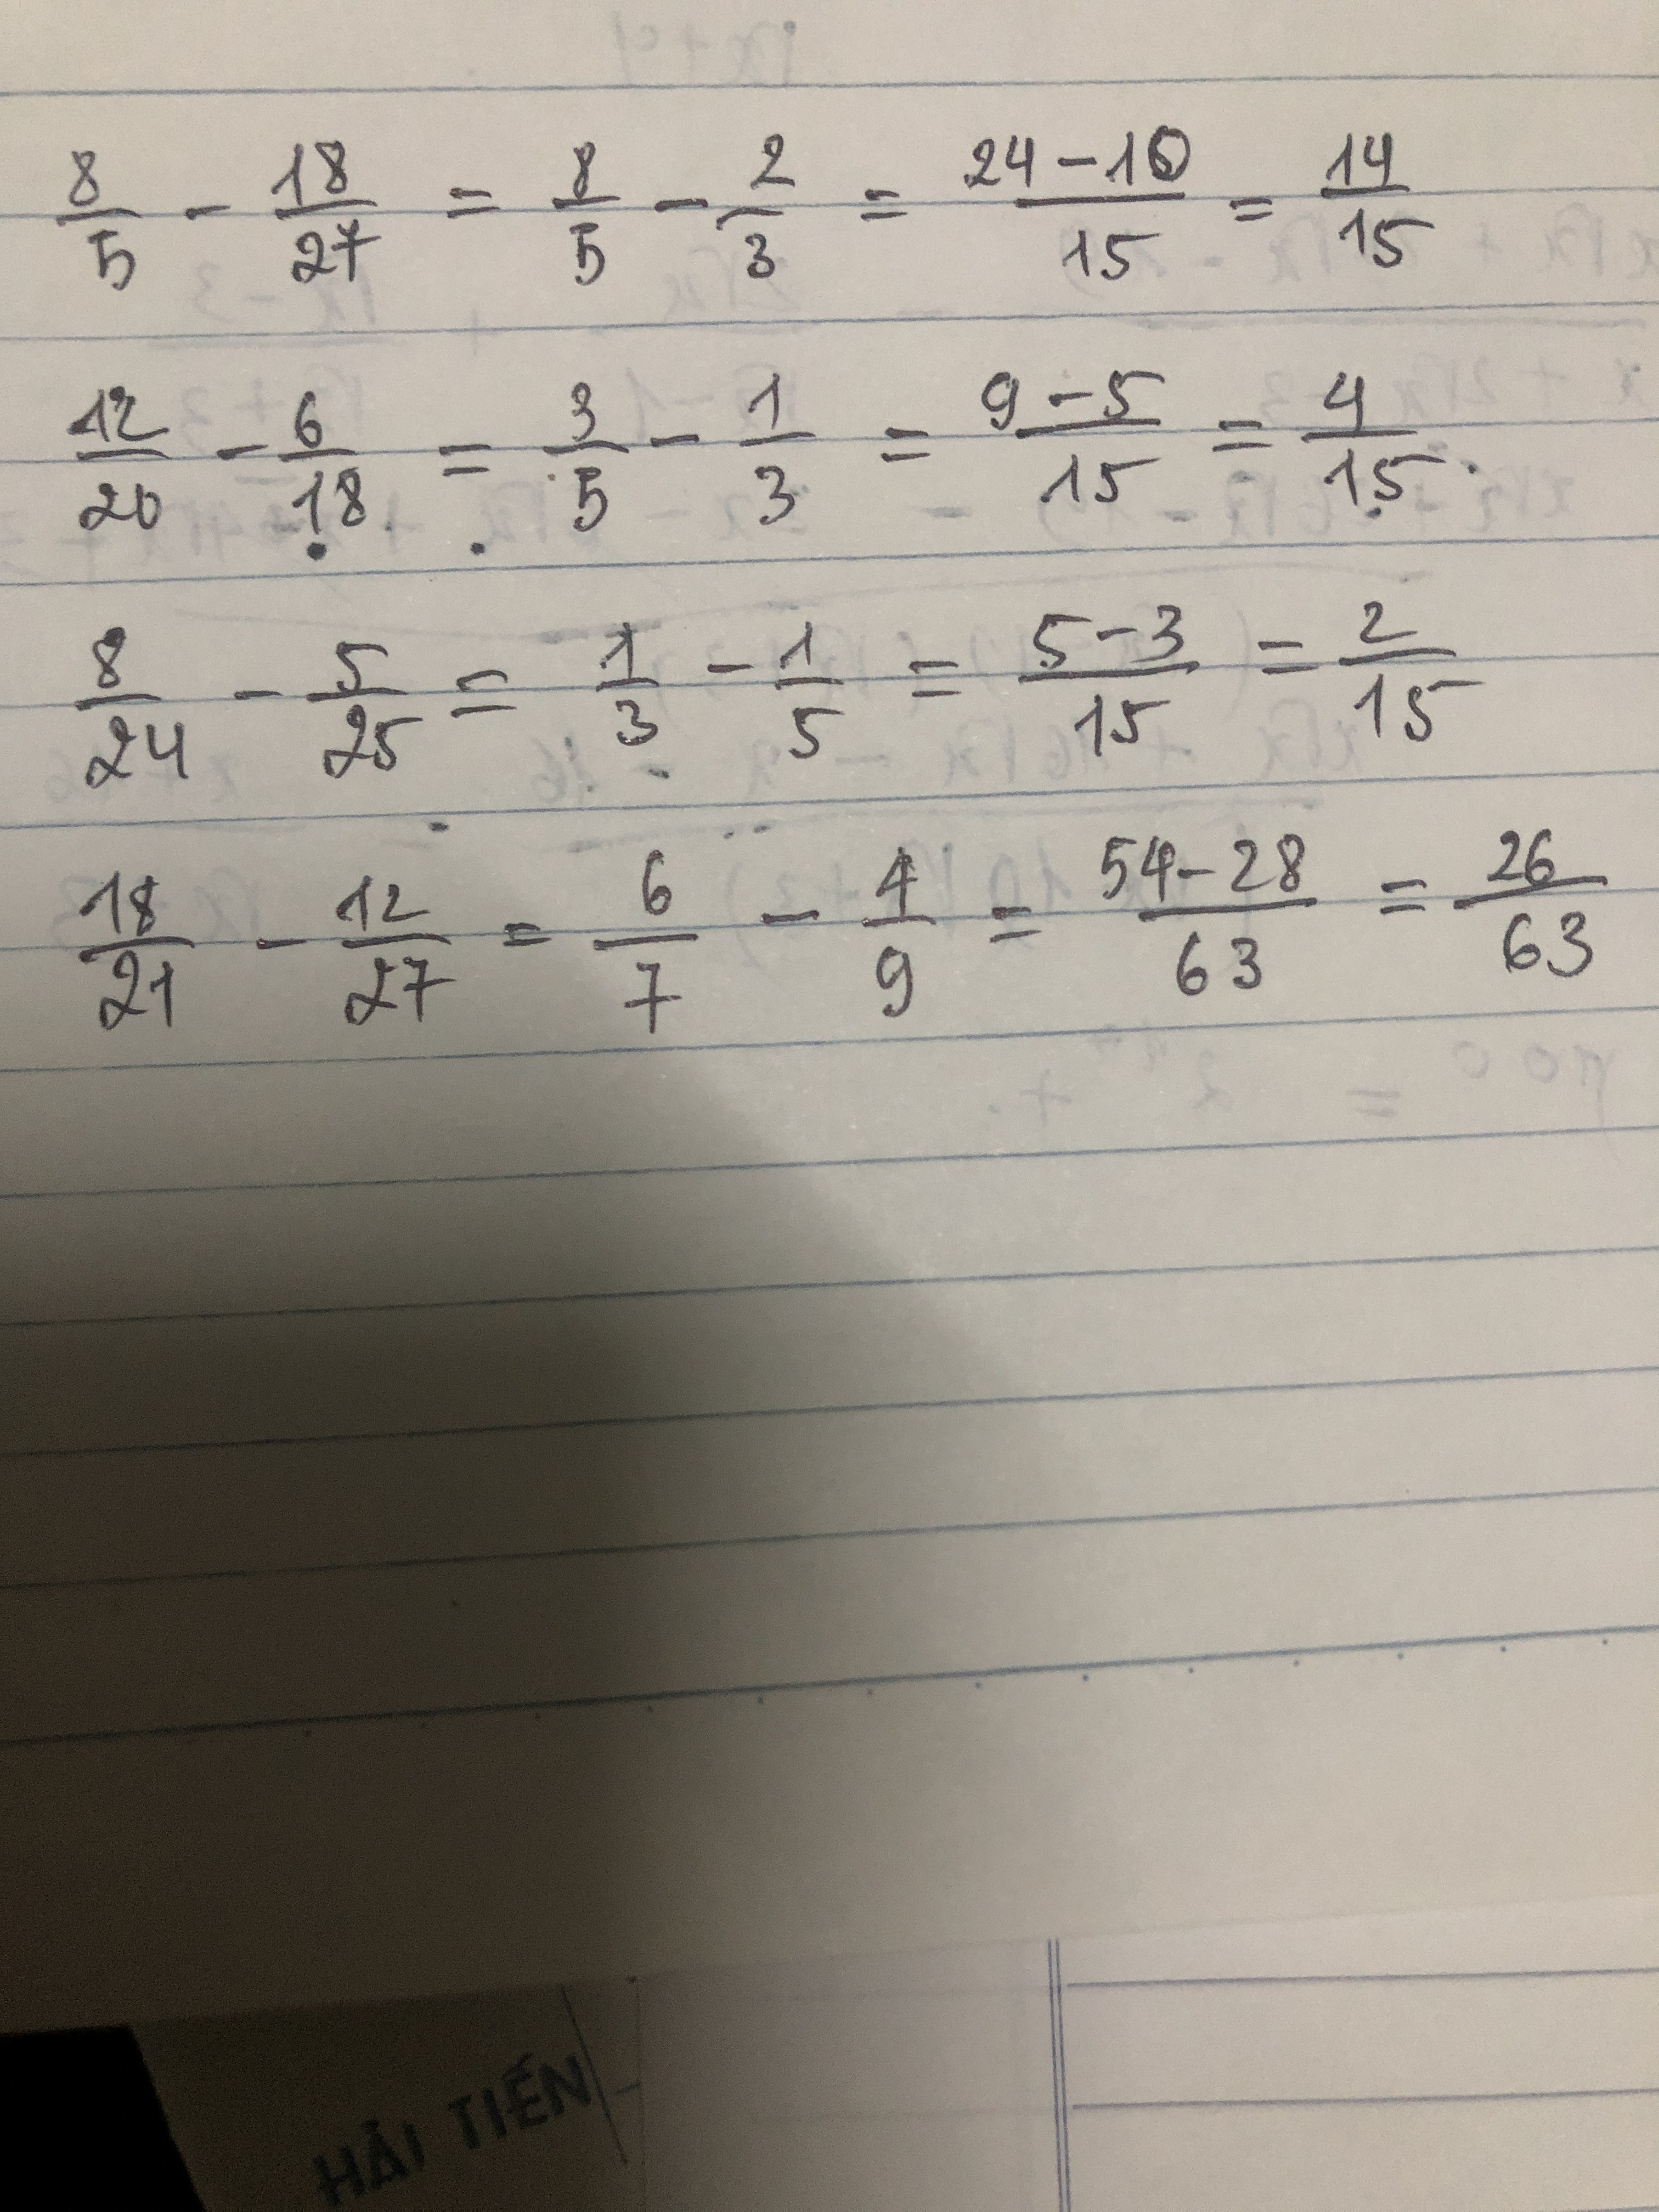 8/5 - 18/27 = 8/5 - 2/3 = (24 - 10)/15 = 14/15
12/20 - 6/18 = 3/5 - 1/3 = (9 - 5)/15 = 4/15.
8/24 - 5/25 = 1/3 - 1/5 = (5 - 3)/15 = 2/15
18/21 - 12/27 = 6/7 - 4/9 = (54 - 28)/63 = 26/63
HẢI TIẾN